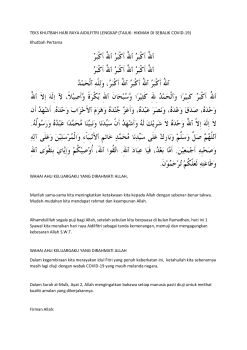 TEKS KHUTBAH HARI RAYA AIDILFITRI LENGKAP (TAJUK : HIKMAH DI SEBALIK COVID-19)
Khutbah Pertama
اَللهُ أَكْبَرُ اَللهُ أَكْبَرُ اَللهُ أَكْبَرُ
اَللهُ أَكْبَرُ اَللهُ أَكْبَرُ اَللهُ أَكْبَرُ
اَللهُ أَكْبَرُ اَللهُ أَكْبَرُ اَللهُ أَكْبَرُ، وَلِلَّهِ الْحَمْدُ
اَللهُ أَكْبَرُ كَبِيْرًا، وَالْحَمْدُ لِلَّهِ كَثِيْرًا، وَسُبْحَانَ اللهِ بُكْرَةً وَأَصِيْلاً، لاَ إِلٰهَ إِلاَّ اللهُ
وَحْدَهُ، صَدَقَ وَعْدَهُ، وَنَصَرَ عَبْدَهُ، وَأَعَزَّ جُنْدَهُ، وَهَزَمَ الأَحْزَابَ وَحْدَهُ، أَشْهَدُ أَن
لاَ إِلٰهَ إِلاَّ اللهُ وَحْدَهُ لاَ شَرِيْكَ لَهُ، وَأَشْهَدُ أَنَّ سَيِّدَنَا وَنَبِيَّنَا مُحَمَّدًا عَبْدُهُ وَرَسُوْلُهُ،
اَللّٰهُمَّ صَلِّ وَسَلِّمْ عَلَى سَيِّدِنَا وَنَبِيِّنَا مُحَمَّدٍ خَاتَمِ الأَنْبِيَاءِ وَالْمُرْسَلِيْنَ، وَعَلَى آلِهِ
وَصَحْبِهِ أَجْمَعِيْنَ، أَمَّا بَعْدُ، فَيَا عِبَادَ اللهِ، اتَّقُوا اللهَ، أُوْصِيْكُمْ وَإِيَّايَ بِتَقْوَى اللهِ
وَطَاعَتِهِ لَعَلَّكُمْ تُرْحَمُوْنَ.
WAHAI AHLI KELUARGAKU YANG DIRAHMATI ALLAH.
Marilah sama-sama kita meningkatkan ketakwaan kita kepada Allah dengan sebenar-benar takwa. Mudah-mudahan kita mendapat rahmat dan keampunan Allah.
Alhamdulillah segala puji bagi Allah, setelah sebulan kita berpuasa di bulan Ramadhan, hari ini 1 Syawal kita meraikan hari raya Aidilfitri sebagai tanda kemenangan, memuji dan mengagungkan kebesaran Allah S.W.T.
WAHAI AHLI KELUARGAKU YANG DIRAHMATI ALLAH
Dalam kegembiraan kita merayakan Idul Fitri yang penuh keberkatan ini, ketahuilah kita sebenarnya masih lagi diuji dengan wabak COVID-19 yang masih melanda negara.
Dalam Surah al-Mulk, Ayat 2, Allah mengingatkan bahawa setiap manusia pasti diuji untuk melihat kualiti amalan yang dikerjakannya.
Firman Allah: